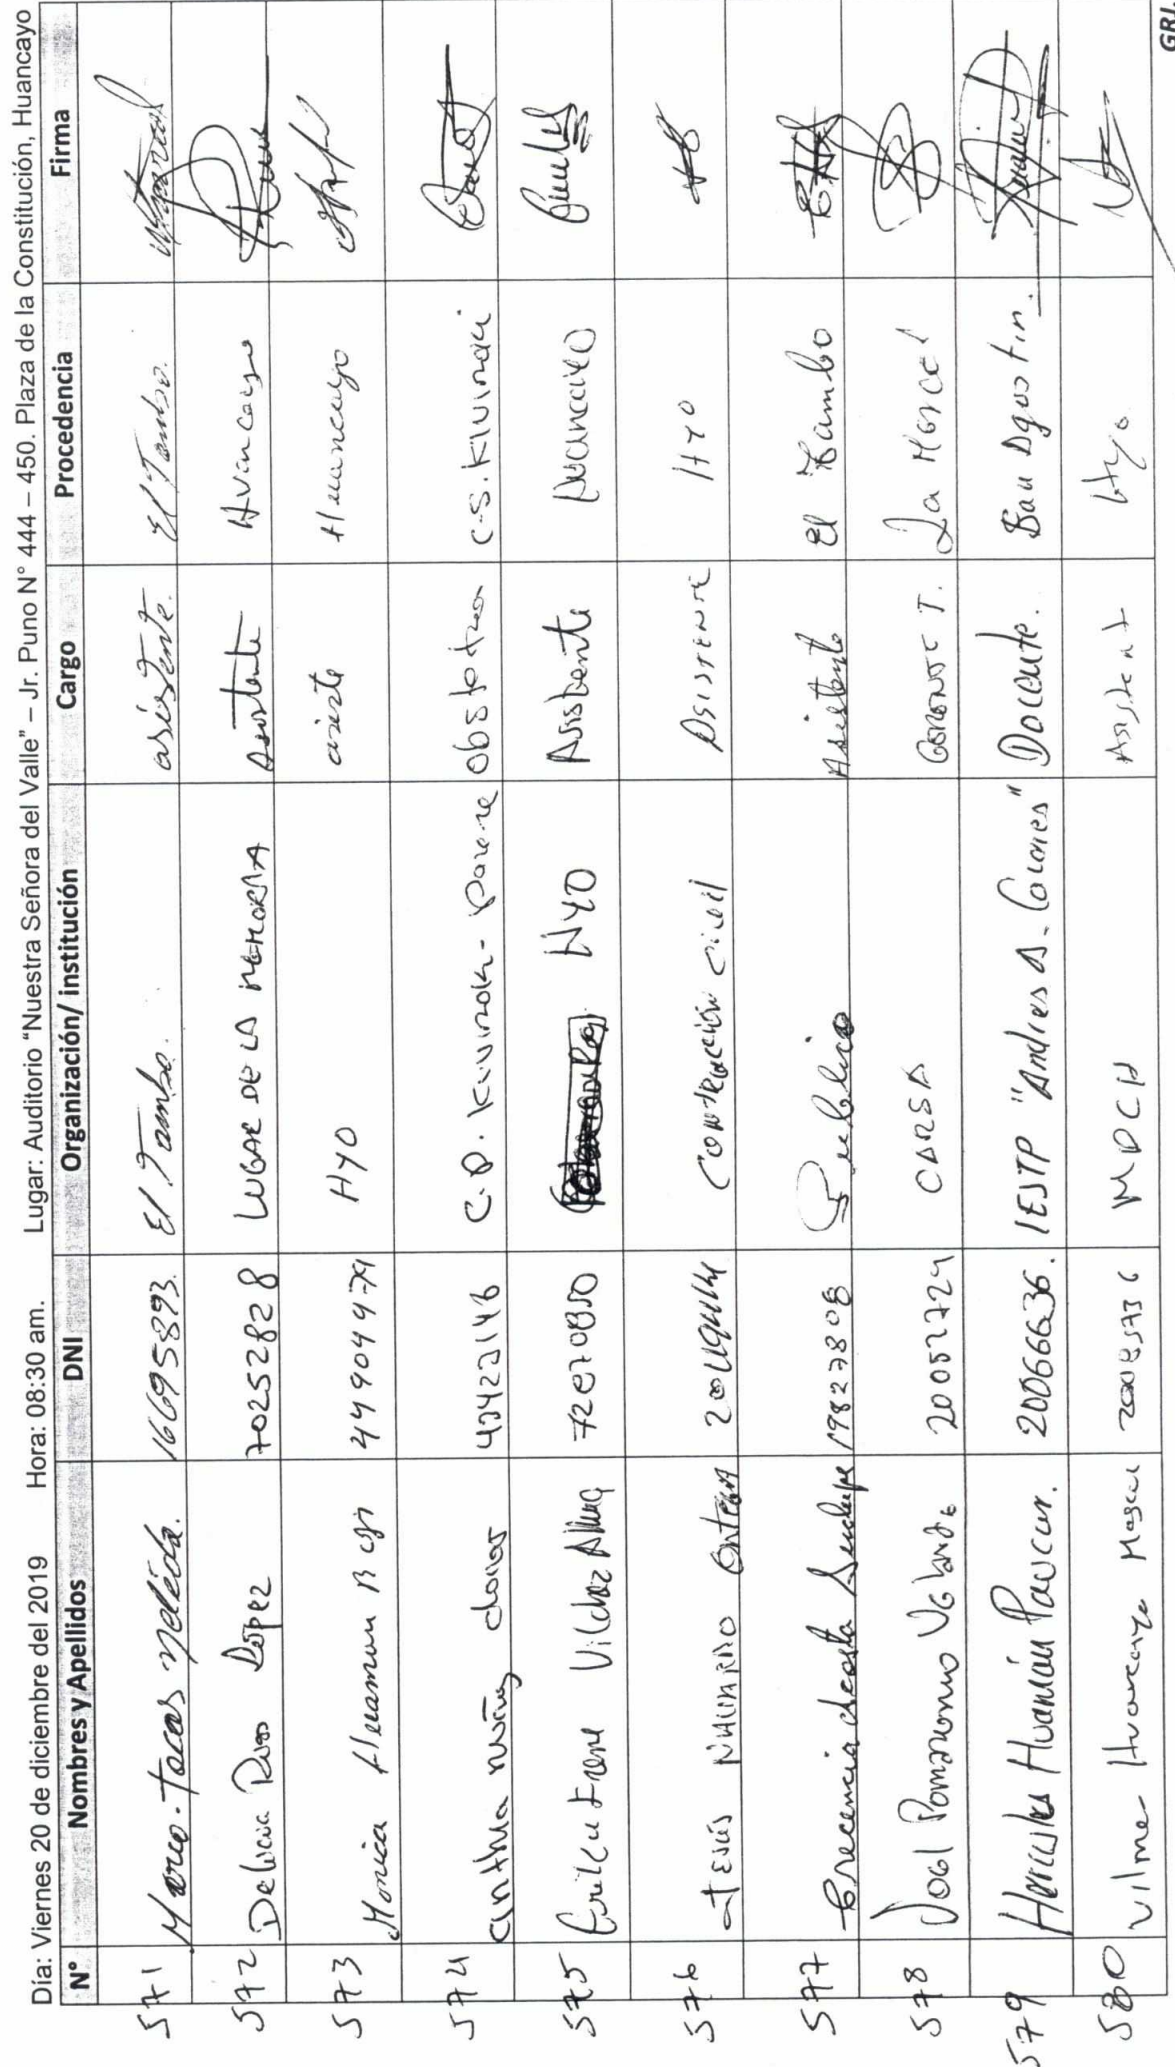 Día: Viernes 20 de diciembre del 2019 Hora: 08:30 am. Lugar: Auditorio "Nuestra Señora del Valle" – Jr. Puno N° 444 – 450. Plaza de la Constitución, Huancayo
N° Nombres y Apellidos DNI Organización/ institución Cargo Procedencia Firma
571 Marco Tacas 16695893. El Tambo. asistente. El Tambo.
572 Rios López 70252828 LUGAR DE LA MEMORIA Asistente Huancayo
573 Monica Huaman 44904979 HYO Huancayo
574 muñoz 42422148 C.P. Kivinaki - Perene Obstetra C.S. Kivinaki
575 Vilchez 72070850 HYO Asistente Huancayo
576 Jesús NAVARRO Construcción civil Asistente HYO
577 Crecencia Acosta 19827808 Publico Asistente El Tambo
578 Joel 20052724 CARSA GERENTE T. La Merced
579 Hercules Huamán Paucar. 20066636. IESTP "Andres A. Cáceres" Docente. San Agustin.
580 Vilma MDCH Asistent Hyo
GRJ.